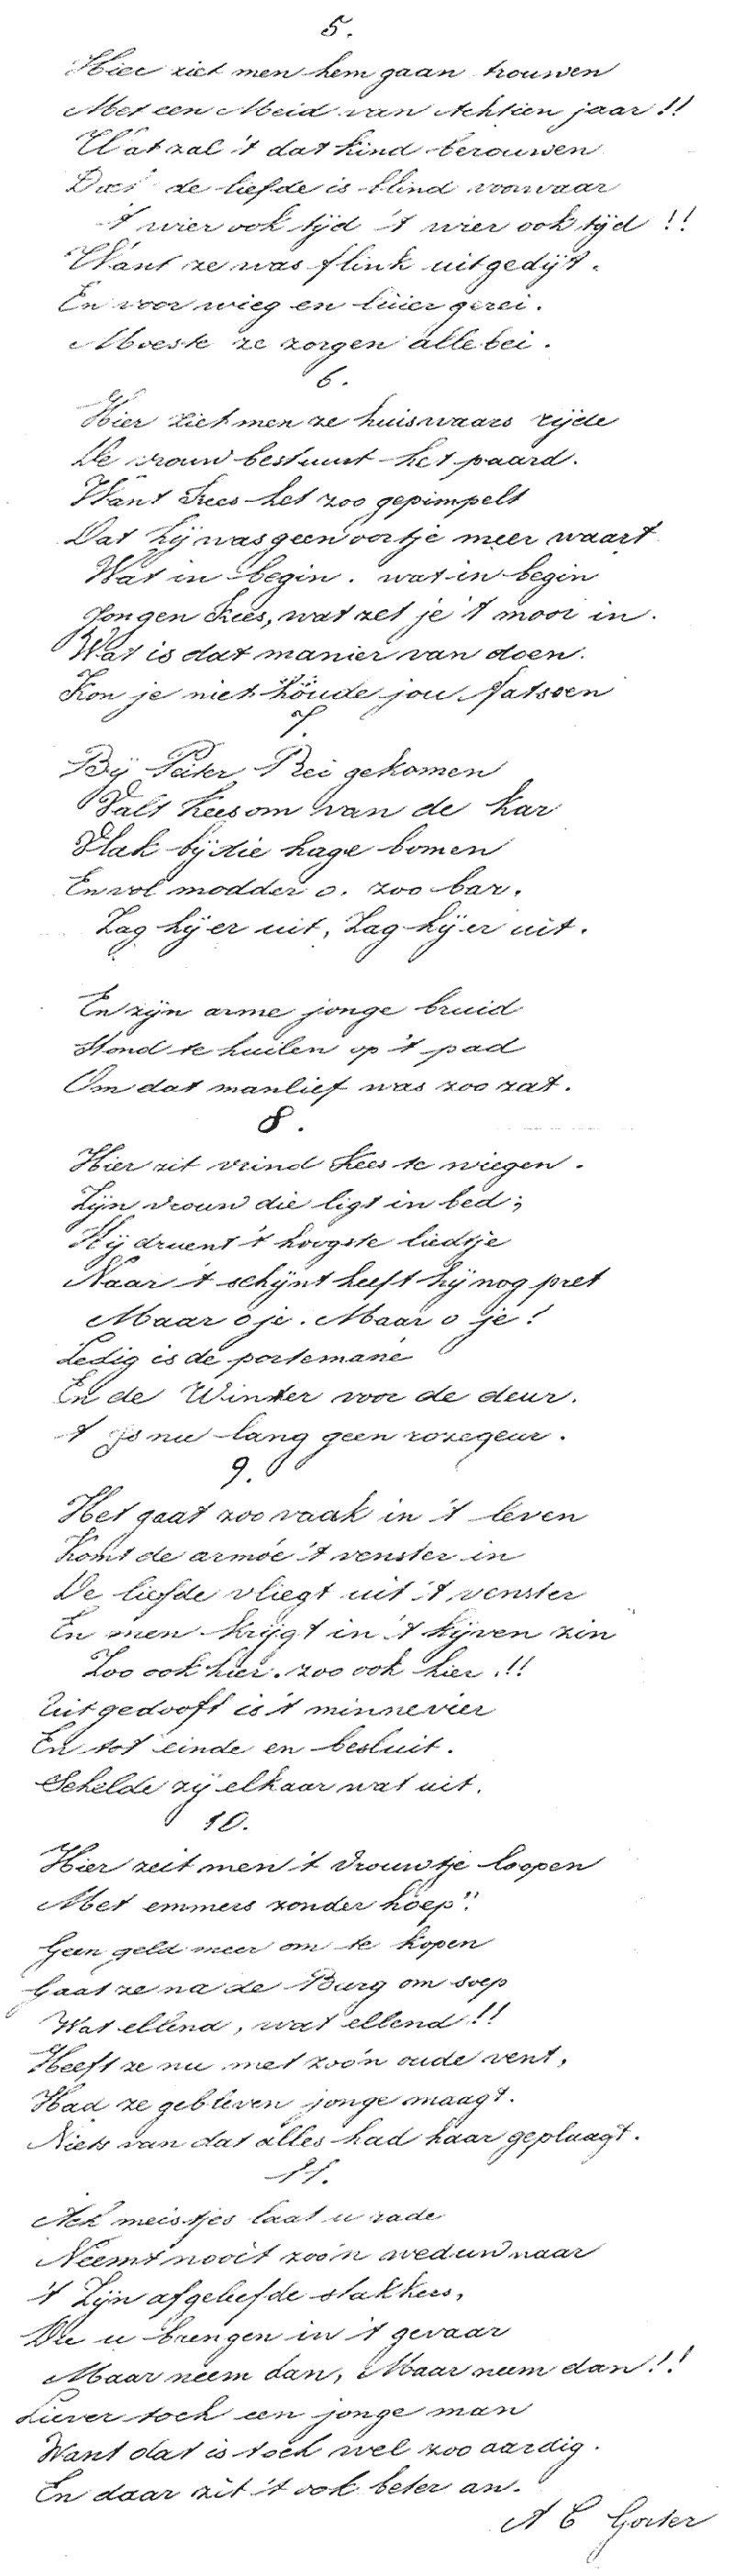 5.
Hier ziet men hem gaan trouwen
Met een Meid van Achtien jaar !!
Wat zal 't dat kind berouwen
de liefde is blind voorwaar
't wier ook tijd 't wier ook tijd !!
Want ze was flink uitgedijt.
En voor wieg en luier gerei.
Moeste ze zorgen allebei.
6.
Hier ziet men ze huiswaars rijde
De vrouw bestuurt het paard.
Want Kees het zoo gepimpelt
Dat hij was geen oortje meer waart
Wat in begin. wat in begin
Jongen Kees, wat zet je 't mooi in.
Wat is dat manier van doen.
Kon je niet houde jou fatsoen
7.
Bij Pieter Rei gekomen
Valt Kees om van de kar
Vlak bij die hage bomen
En vol modder o. zoo bar.
Zag hij er uit, Zag hij er uit.
En zijn arme jonge bruid
Stond te huilen op 't pad
Om dat manlief was zoo zat.
8.
Hier zit vrind Kees te wiegen.
Zijn vrouw die ligt in bed;
Hij druent 't hoogste liedje
Naar 't schijnt heeft hij nog pret
Maar o je. Maar o je!
Ledig is de portemané
En de Winter voor de deur.
't Is nu lang geen rozegeur.
9.
Het gaat zoo vaak in 't leven
Komt de armoe 't venster in
De liefde vliegt uit 't venster
En men krijgt in 't kijven zin
Zoo ook hier. zoo ook hier.!!
Uit gedooft is 't minnevier
En tot einde en besluit.
Schelde zij elkaar wat uit.
10.
Hier zeit men 't vrouwtje loopen
Met emmers zonder hoep".
Geen geld meer om te kopen
Gaat ze na de Burg om soep
Wat ellend, wat ellend!!
Heeft ze nu met zoo'n oude vent,
Had ze gebleven jonge maagt.
Niets van dat alles had haar geplaagt.
11.
Ach meistjes laat u rade
Neemt nooit zoo'n weduwnaar
't Zijn afgeliefde stakkers,
Die u brengen in 't gevaar
Maar neem dan, Maar neem dan!!
Liever toch een jonge man
Want dat is toch wel zoo aardig.
En daar zit 't ook beter an.
A C Gorter